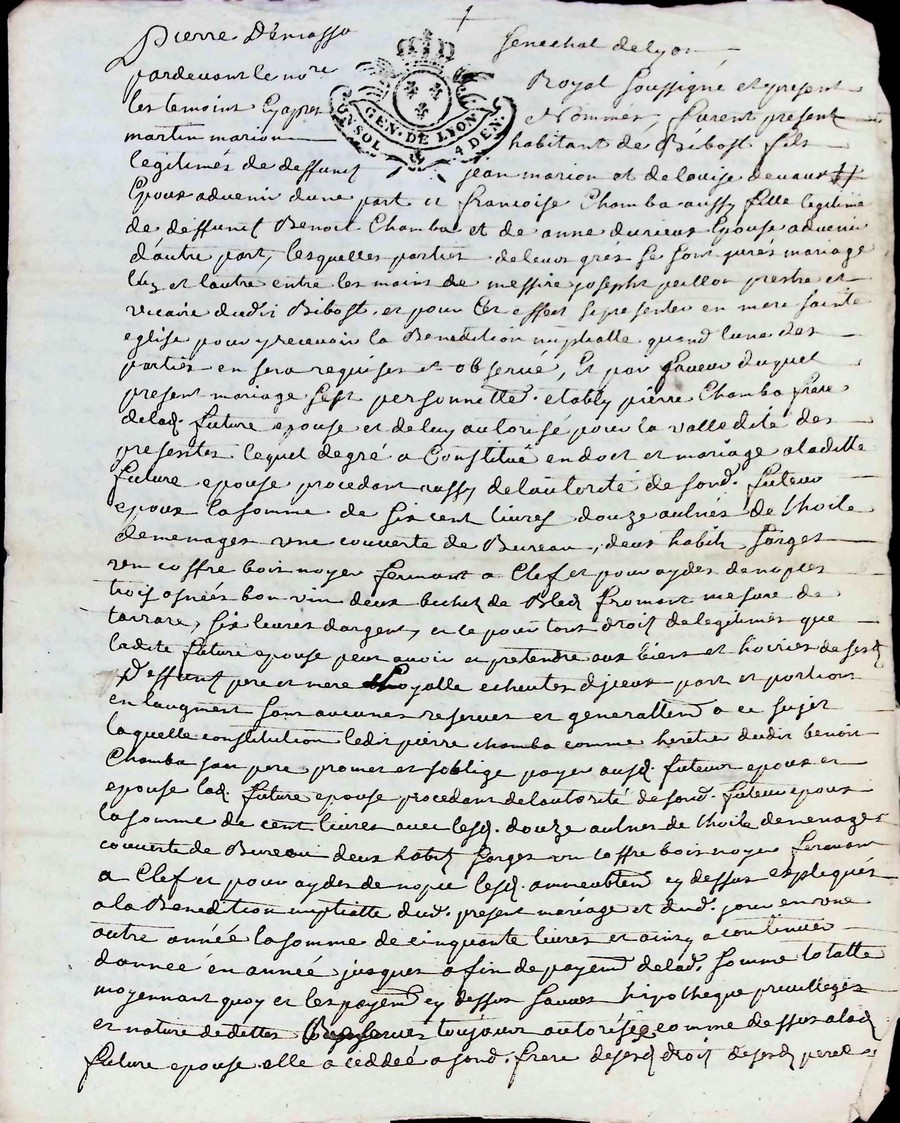 1
Pierre Demasso Senechal de lyon
pardevant le nore Royal soussigné et present
les temoins Cyapres Nommés, furent present
martin marion habitant de Bibost fils
legitimés de deffunct jean marion et de louise devaux
Epoux advenir dune part et francoise Chamba aussy fille legitime
de deffunct Benoit Chamba et de anne durieux Epouse advenir
d'autre part, lesquelles parties de leurs grés se sont jurés mariage
lun et lautre entre les mains de messire joseph peillon prestre et
vicaire dudit Bibost, et pour Cet effect se presenter en mere sainte
eglise pour y recevoir la Benediction nuptialle quand lune des
parties en sera requises et observué, Et par faveur duquel
present mariage sest personnellemd. etably pierre Chamba frere
delad. future epouse et deluy autorisé pour la valledité des
presentes lequel degré a Constitué en doct et mariage aladitte
future epouse procedant aussy delautorité de sond. futeur
epoux la somme de six cent livres douze aulnés de thoile
demenages une couverte de Bureau, deux habits sarges
un coffre bois noyer fermant a Clef et pour aydes de nopces
trois asnées bon vin deux bichet de Bled froment mesure de
tarrare, six livres dargent, et ce pour tout droit de legitimes que
ladite future epouse peut avoir et pretendre aux biens et hoiries de sesd
Deffunct pere et mere loyalle echeutes dijceux part et portions
en laugment sans aucunes reserves et generallemd a ce sujet
laquelle constitution ledit pierre chamba comme heretier dudit benoit
Chamba son pere promet et soblige payer ausd. futeur epoux et
epouse lad. future epouse procedant delautorité desond. futeur epoux
la somme de cent livres avec lesd. douze aulnes de thoile demenages
couverte de Bureau deux habits sarges un coffre bois noyer fermant
a Clef et pour aydes de nopce lesd. ammeublemd cy dessus expliqués
a la Benediction nuptialle dud. present mariage et dud. jour en une
autre année la somme de cinquante livres et ainsy a continuer
dannée en année jusques a fin de payemd delad. somme totalle
moyennant quoy et les payemd cy dessus sauves hipotheque previllegés
et nature de dettes toujour autorisée comme dessus a lad
future epouse elle a ceddée a sond. frere desesd droit desesd pere